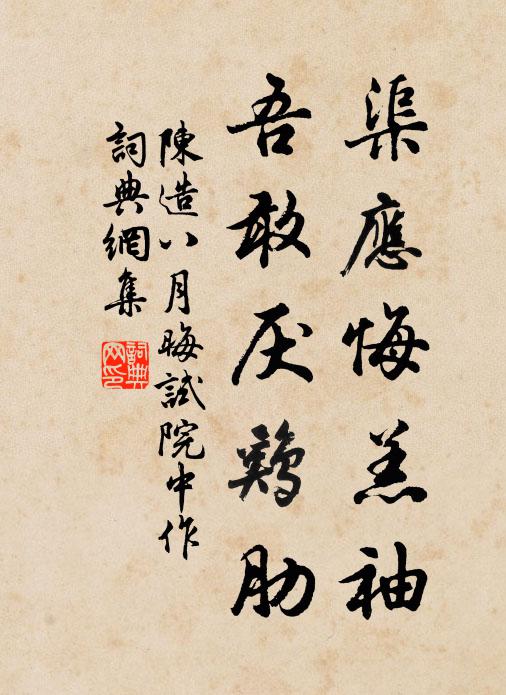 渠應悔羔袖
吾敢厌鷄肋
陳造八月晦試院中作
詞典網集
詞典
网印